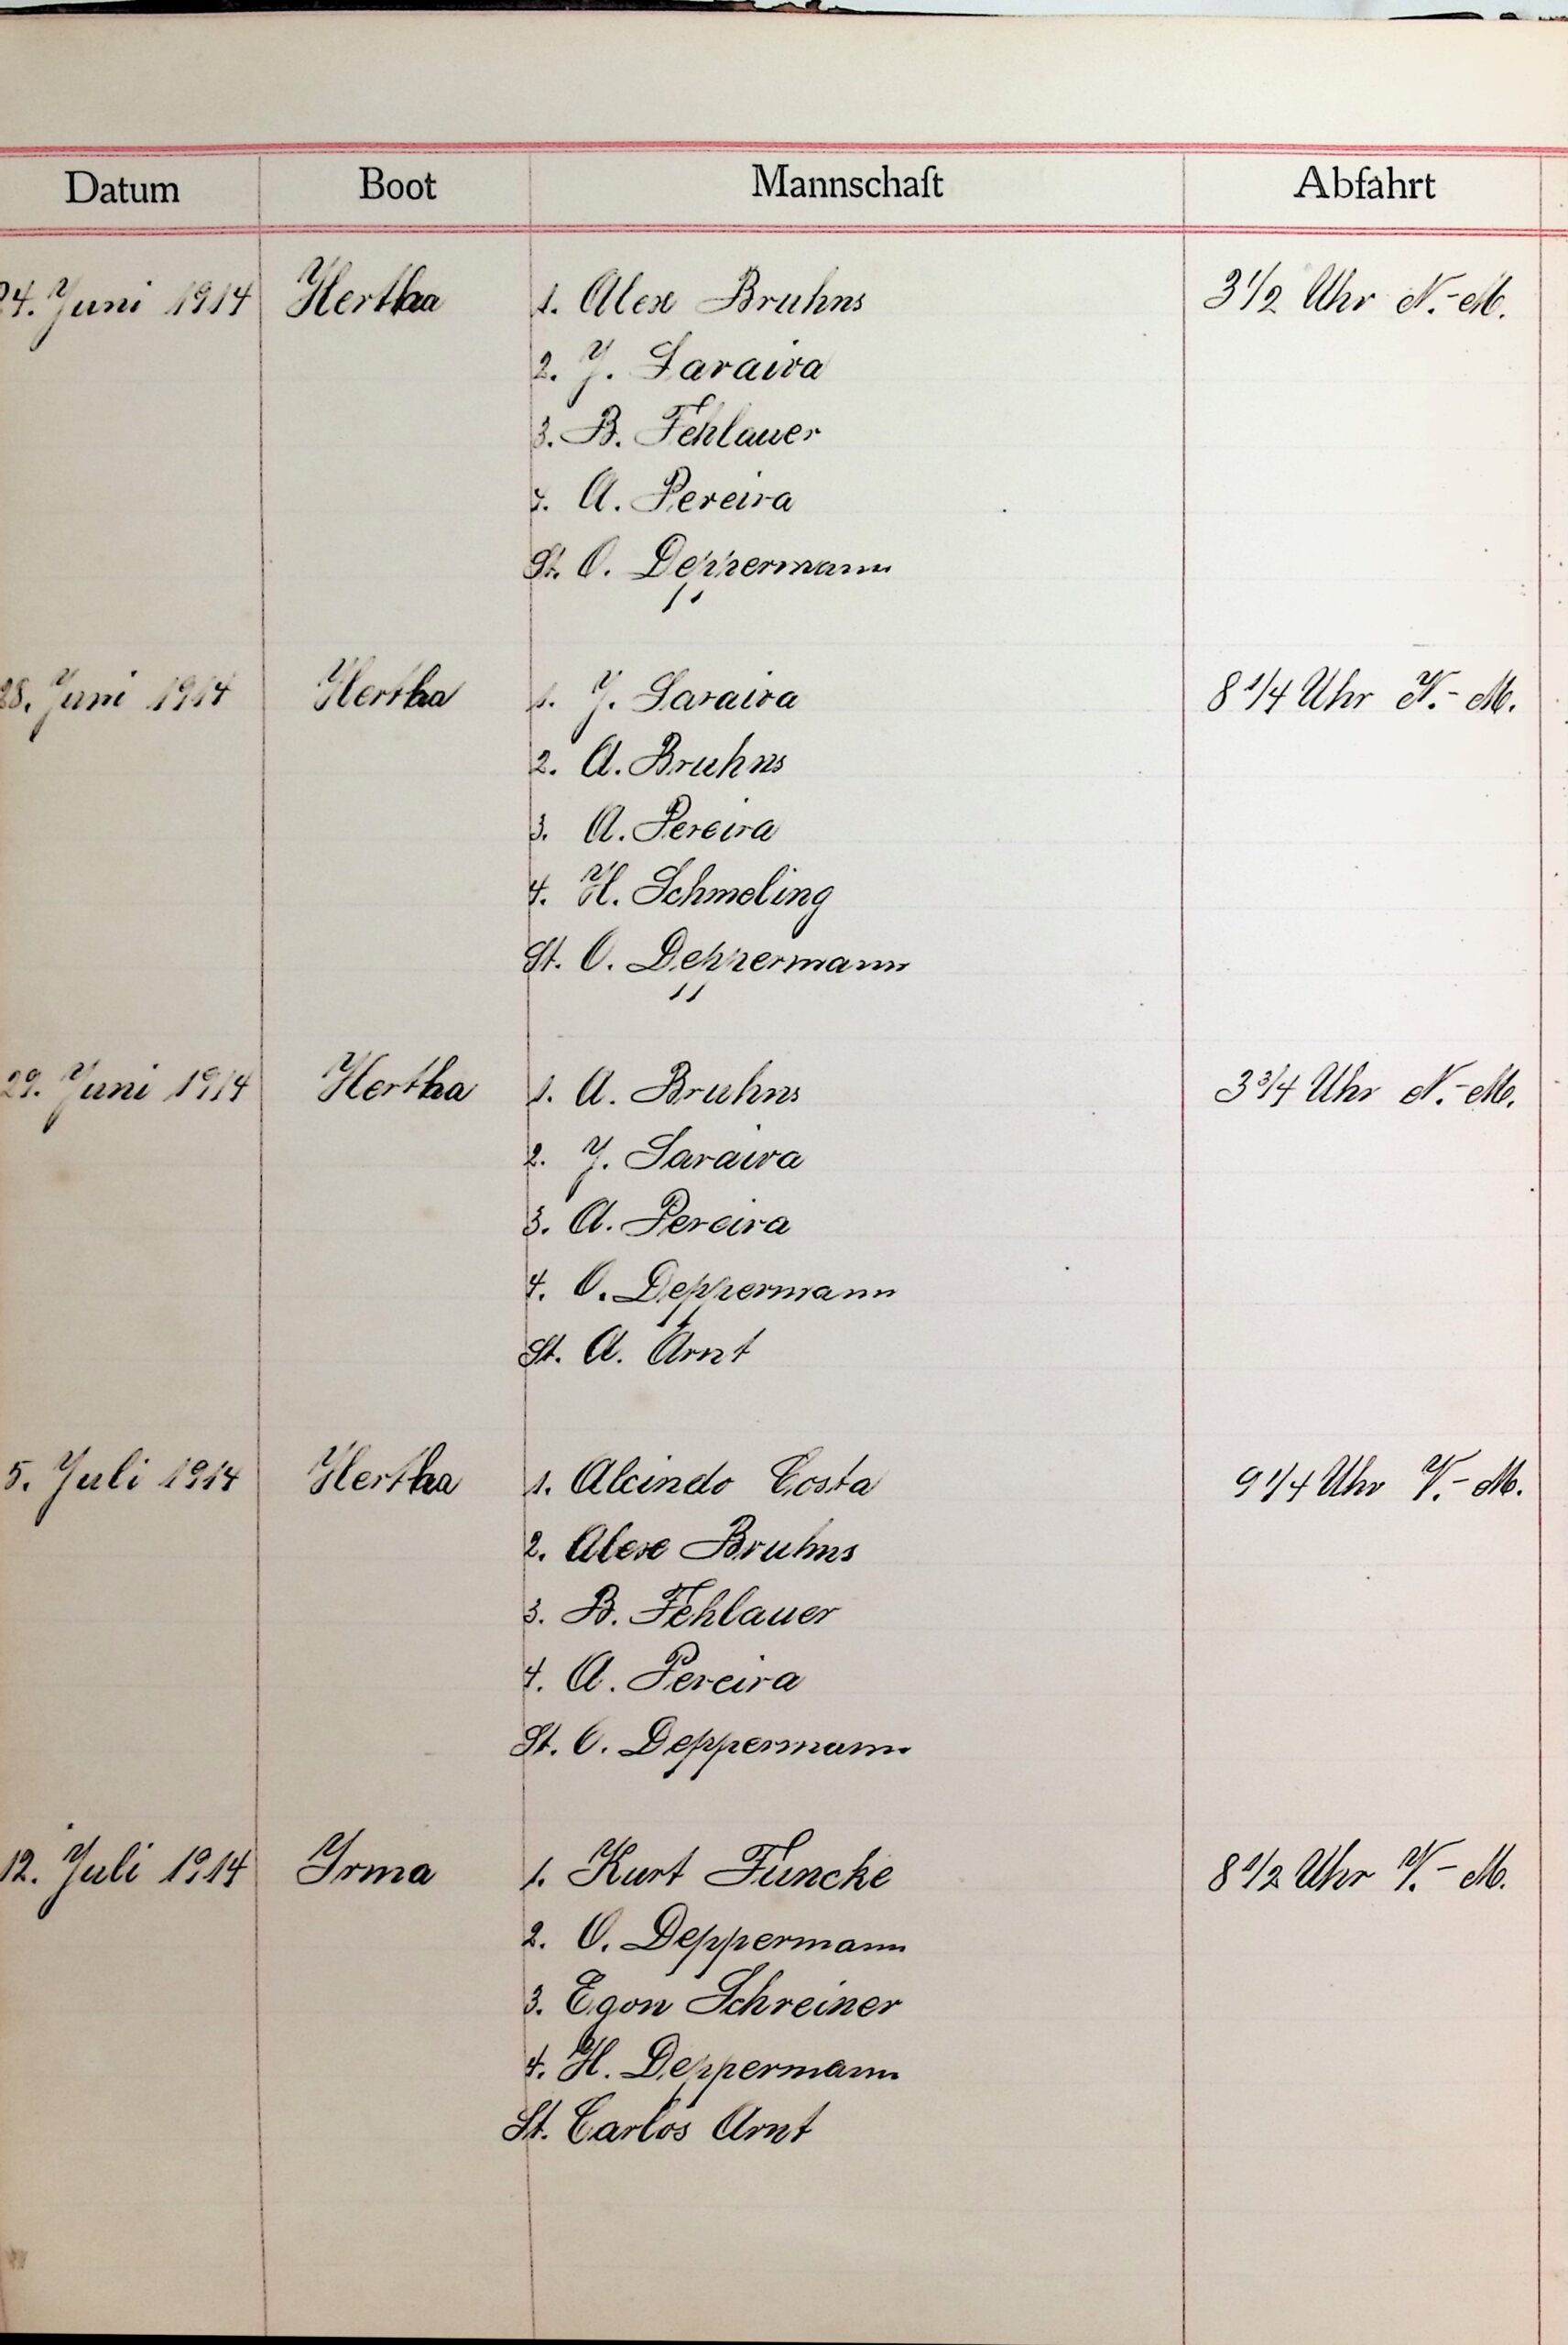 Datum Boot Mannschaft Abfahrt
24. Juni 1914 Hertha 1. Alex Bruhns 3 1/2 Uhr N.-M.
2. J. Saraiva
3. B. Fehlauer
4. A. Pereira
St. O. Deppermann
28. Juni 1914 Hertha 1. J. Saraiva 8 1/4 Uhr V.-M.
2. A. Bruhns
3. A. Pereira
4. H. Schmeling
St. O. Deppermann
29. Juni 1914 Hertha 1. A. Bruhns 3 3/4 Uhr N.-M.
2. J. Saraiva
3. A. Pereira
4. O. Deppermann
St. A. Arnt
5. Juli 1914 Hertha 1. Alcindo Costa 9 1/4 Uhr V.-M.
2. Alex Bruhns
3. B. Fehlauer
4. A. Pereira
St. O. Deppermann
12. Juli 1914 Irma 1. Kurt Funcke 8 1/2 Uhr V.-M.
2. O. Deppermann
3. Egon Schreiner
4. H. Deppermann
St. Carlos Arnt